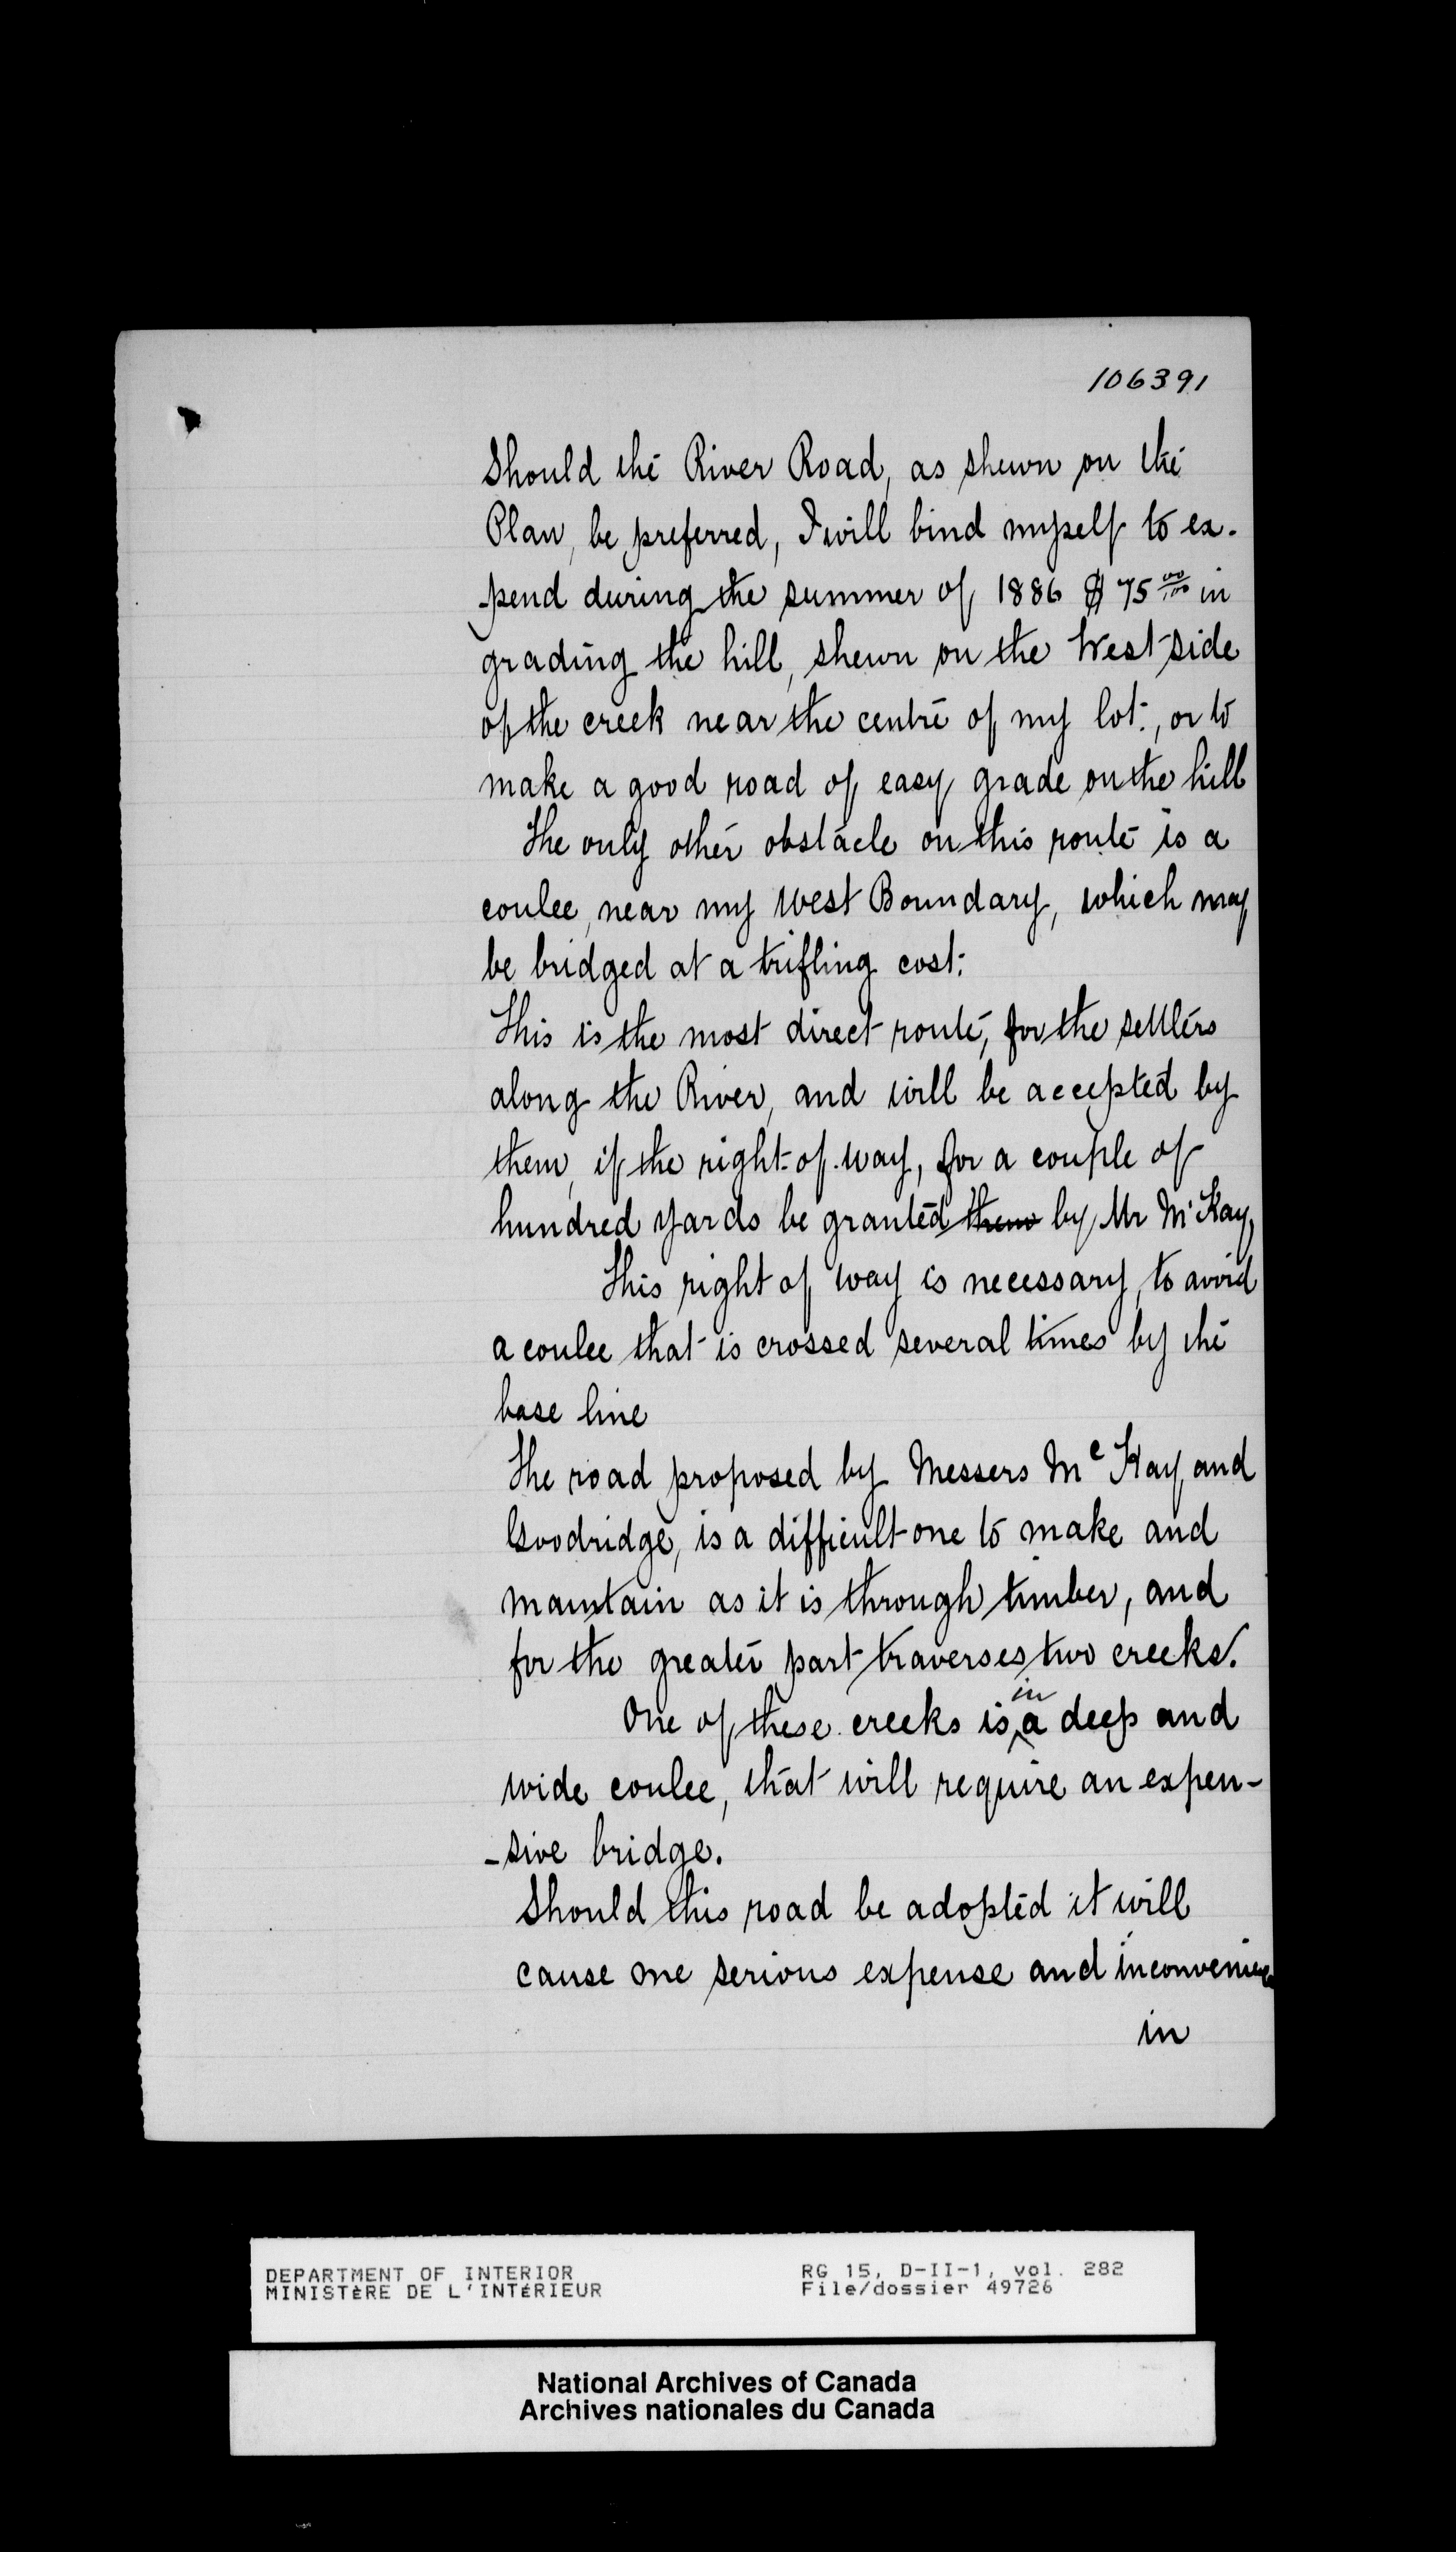 106391
Should the River Road, as shewn on the
Plan, be preferred, I will bind myself to ex-
-pend during the summer of 1886 $75 00/100 in
grading the hill, shewn on the West side
of the creek near the centre of my lot, or to
make a good road of easy grade on the hill
The only other obstacle on this route is a
coulee, near my West Boundary, which may
be bridged at a trifling cost.
This is the most direct route, for the settlers
along the River, and will be accepted by
them, if the right-of-way, for a couple of
hundred yards be granted them by Mr McKay,
This right of way is necessary, to avoid
a coulee that is crossed several times by the
base line
The road proposed by Messers McKay and
Goodridge, is a difficult one to make and
maintain as it is through timber, and
for the greater part traverses two creeks.
One of these creeks is in a deep and
wide coulee, that will require an expen-
-sive bridge.
Should this road be adopted it will
cause me serious expense and inconvenience
in
DEPARTMENT OF INTERIOR RG 15, D-II-1, vol. 282
MINISTÈRE DE L'INTÉRIEUR File/dossier 49726
National Archives of Canada
Archives nationales du Canada